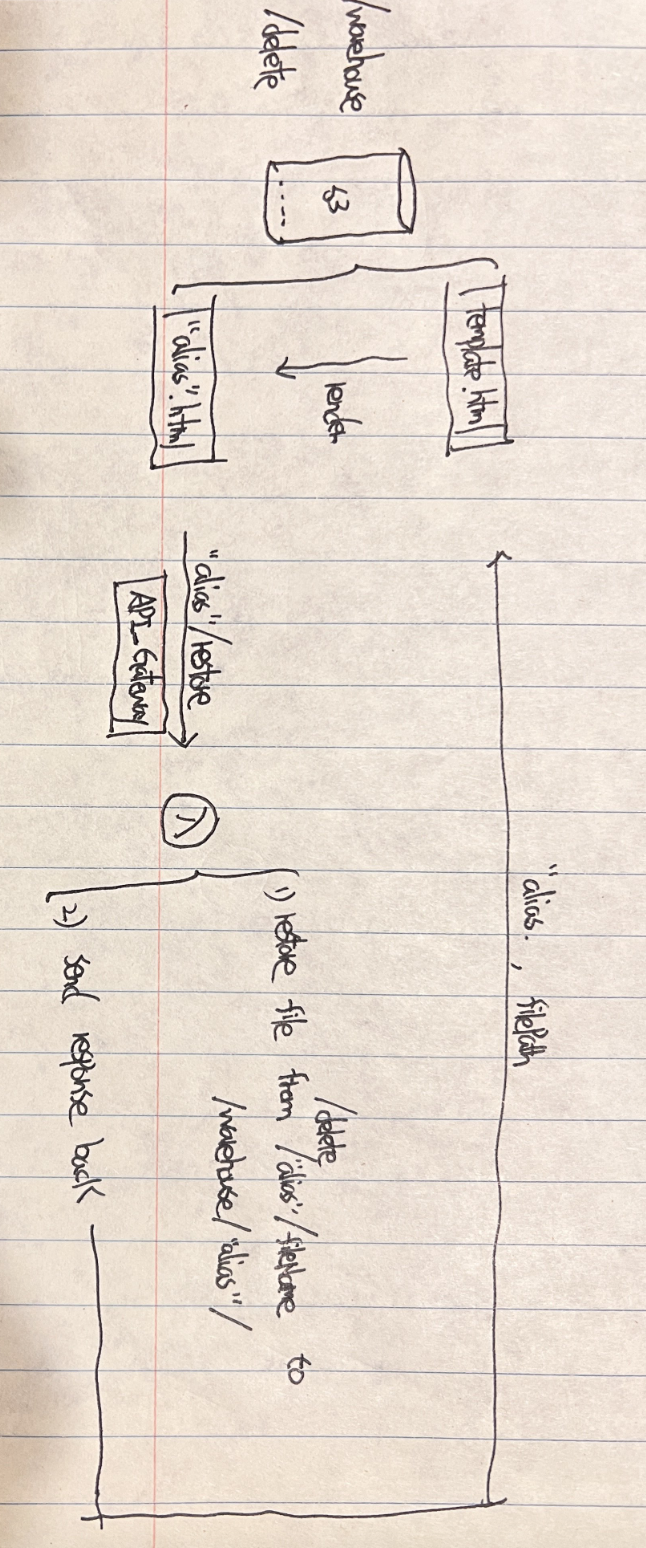 /warehouse
/delete
S3
template.html
render
"alias".html
"alias"/restore
API_Gateway
λ
"alias. , filePath
1) restore file from /delete/"alias"/fileName to
/warehouse/"alias"/
2) send response back